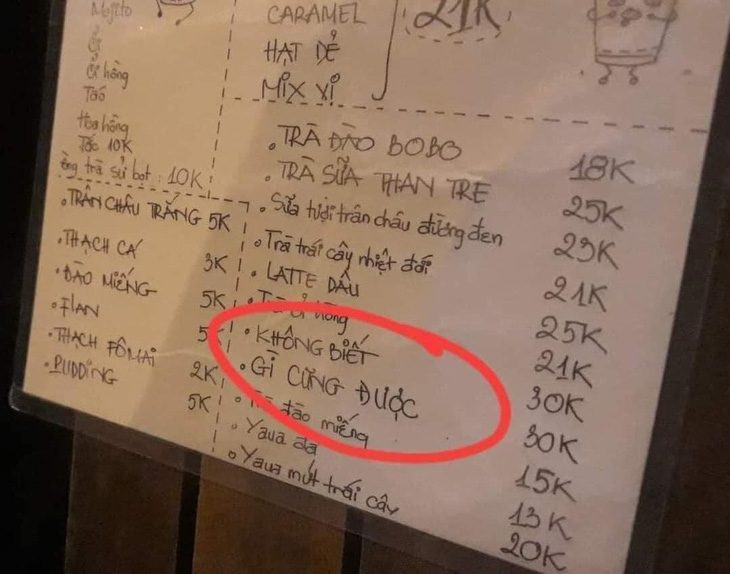 Mojito
Ổi
Ổi hồng
Táo
Hoa hồng
Tóc 10K
ông trà sủi bọt : 10K
• TRÂN CHÂU TRẮNG 5K
• THẠCH CÁ 3K
• ĐÀO MIẾNG 5K
• FLAN 5K
• THẠCH FÔMAI 2K
• PUDDING 5K
CARAMEL
HẠT DẺ
MIX VỊ
21K
• TRÀ ĐÀO BOBO 18K
• TRÀ SỮA THAN TRE 25K
• Sữa tươi trân châu đường đen 23K
• Trà trái cây nhiệt đới 21K
• LATTE DÂU 25K
• Trà ổi hồng 21K
• KHÔNG BIẾT 30K
• GÌ CŨNG ĐƯỢC 30K
• Trà đào miếng 15K
• Yaua đá 13K
• Yaua mứt trái cây 20K